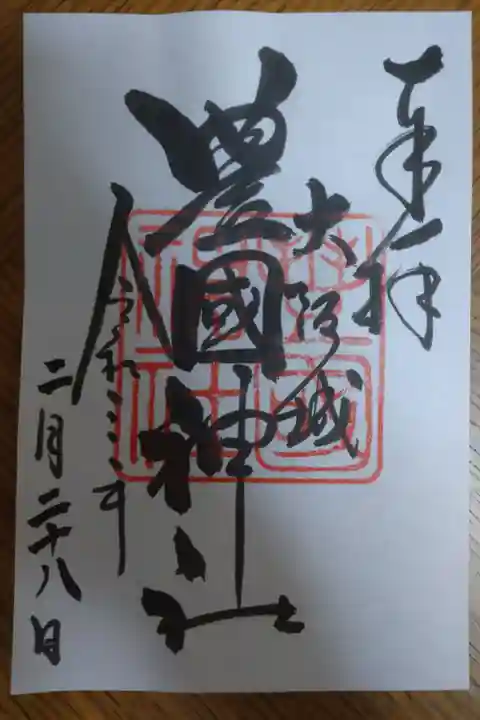 奉拝
大阪城
豊國神社
令和三年
二月二十八日